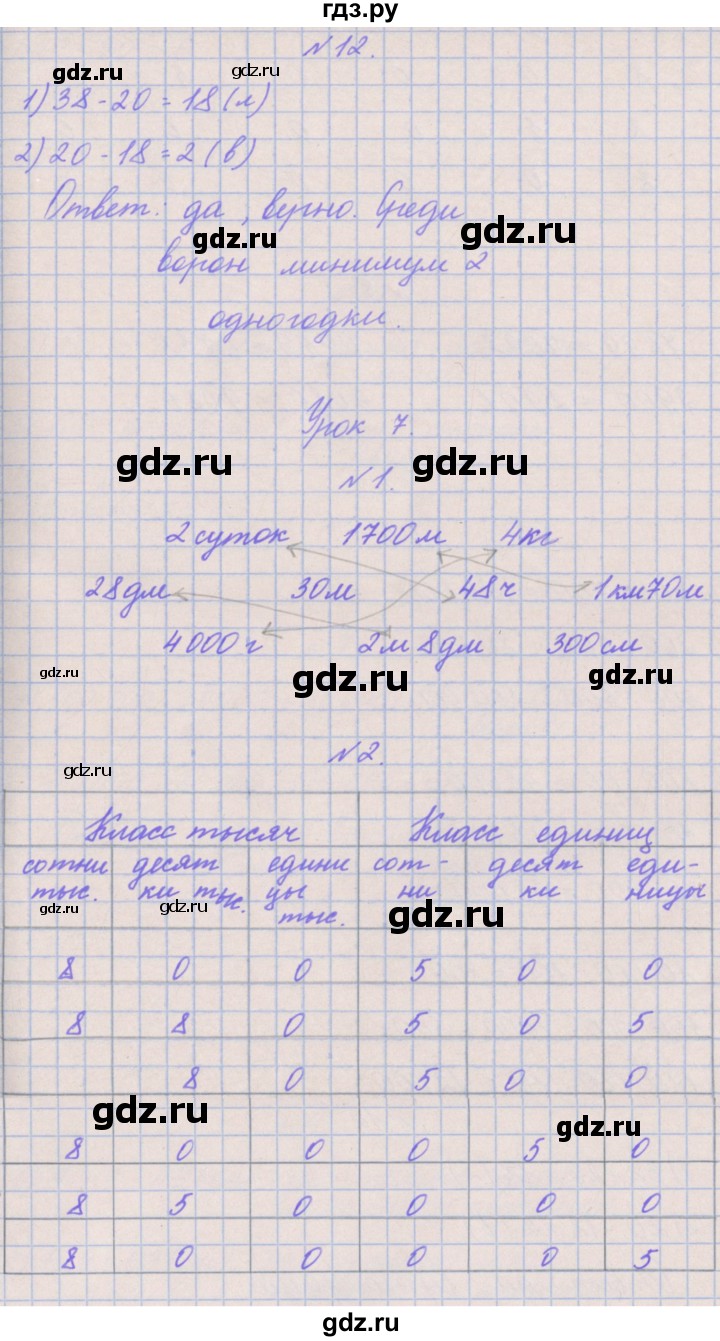 гдз.ру
№12.
gdz.ru gdz.ru
1) 38-20=18(л)
2) 20-18=2(в)
Ответ: да, верно. Среди
gdz.ru gdz.ru
ворон минимум 2
одногодки.
Урок 7.
gdz.ru gdz.ru
№1.
2 суток 1700м 4кг
28дм 30м 48ч 1км70м
4000г 2м 8дм 300см
gdz.ru gdz.ru gdz.ru
№2.
gdz.ru
Класс тысяч Класс единиц
сотни десят едини сот- десят еди-
тыс. ки тыс. цы ни ки ницы
gdz.ru gdz.ru тыс. gdz.ru
8 0 0 5 0 0
8 8 0 5 0 5
8 0 5 0 0
gdz.ru gdz.ru
8 0 0 0 5 0
8 5 0 0 0 0
8 0 0 0 0 5
gdz.ru